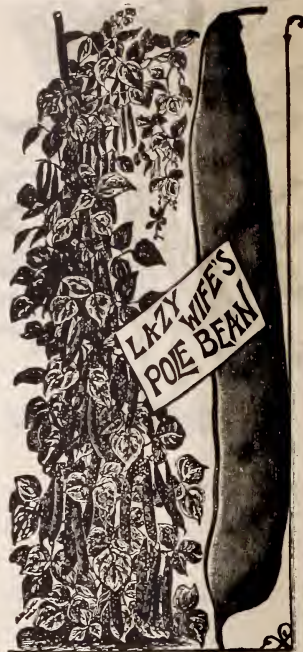 LAZY WIFE'S
POLE BEAN